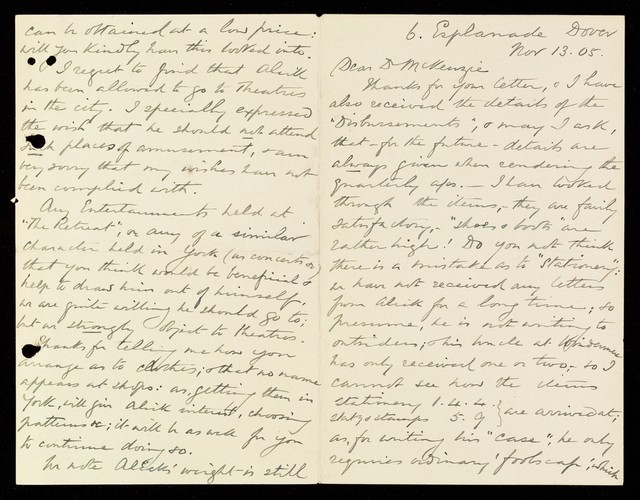 6. Esplanade Dover
Nov 13. 05.
Dear Dr McKenzie
Thanks for your letter, & I have
also received the details of the
"Disbursements"; & may I ask,
that - for the future - details are
always given when rendering the
quarterly a/cs. — I have looked
through the items, - they are fairly
satisfactory, - "shoes & boots" are
rather high! Do you not think
there is a mistake as to "Stationery":
we have not received any letters
from Alick for a long time; so
presume, he is not writing to
outsiders; & his Uncle at
has only received one or two, - so I
cannot see how the items
stationery 1. 4. 4. } are arrived at;
stamps 5. 9
as, for writing his "case", he only
requires ordinary 'foolscap', which
can be obtained at a low price:
will you kindly have this looked into.
I regret to find that Alick
has been allowed to go to Theatres
in the city. I specially expressed
the wish that he should not attend
such places of amusement, & am
very sorry that my wishes have not
been complied with.
Any Entertainments held at
"The Retreat", or any of a similar
character held in York (as concerts &c)
that you think would be beneficial &
help to draw him out of himself,
we are quite willing he should go to;
but we strongly object to Theatres.
Thanks for telling me how you
arrange as to clothes; & that no name
appears at shops: as, getting them in
York, will give Alick interest, choosing
patterns &c; it will be as well for you
to continue doing so.
We note Alick's weight is still